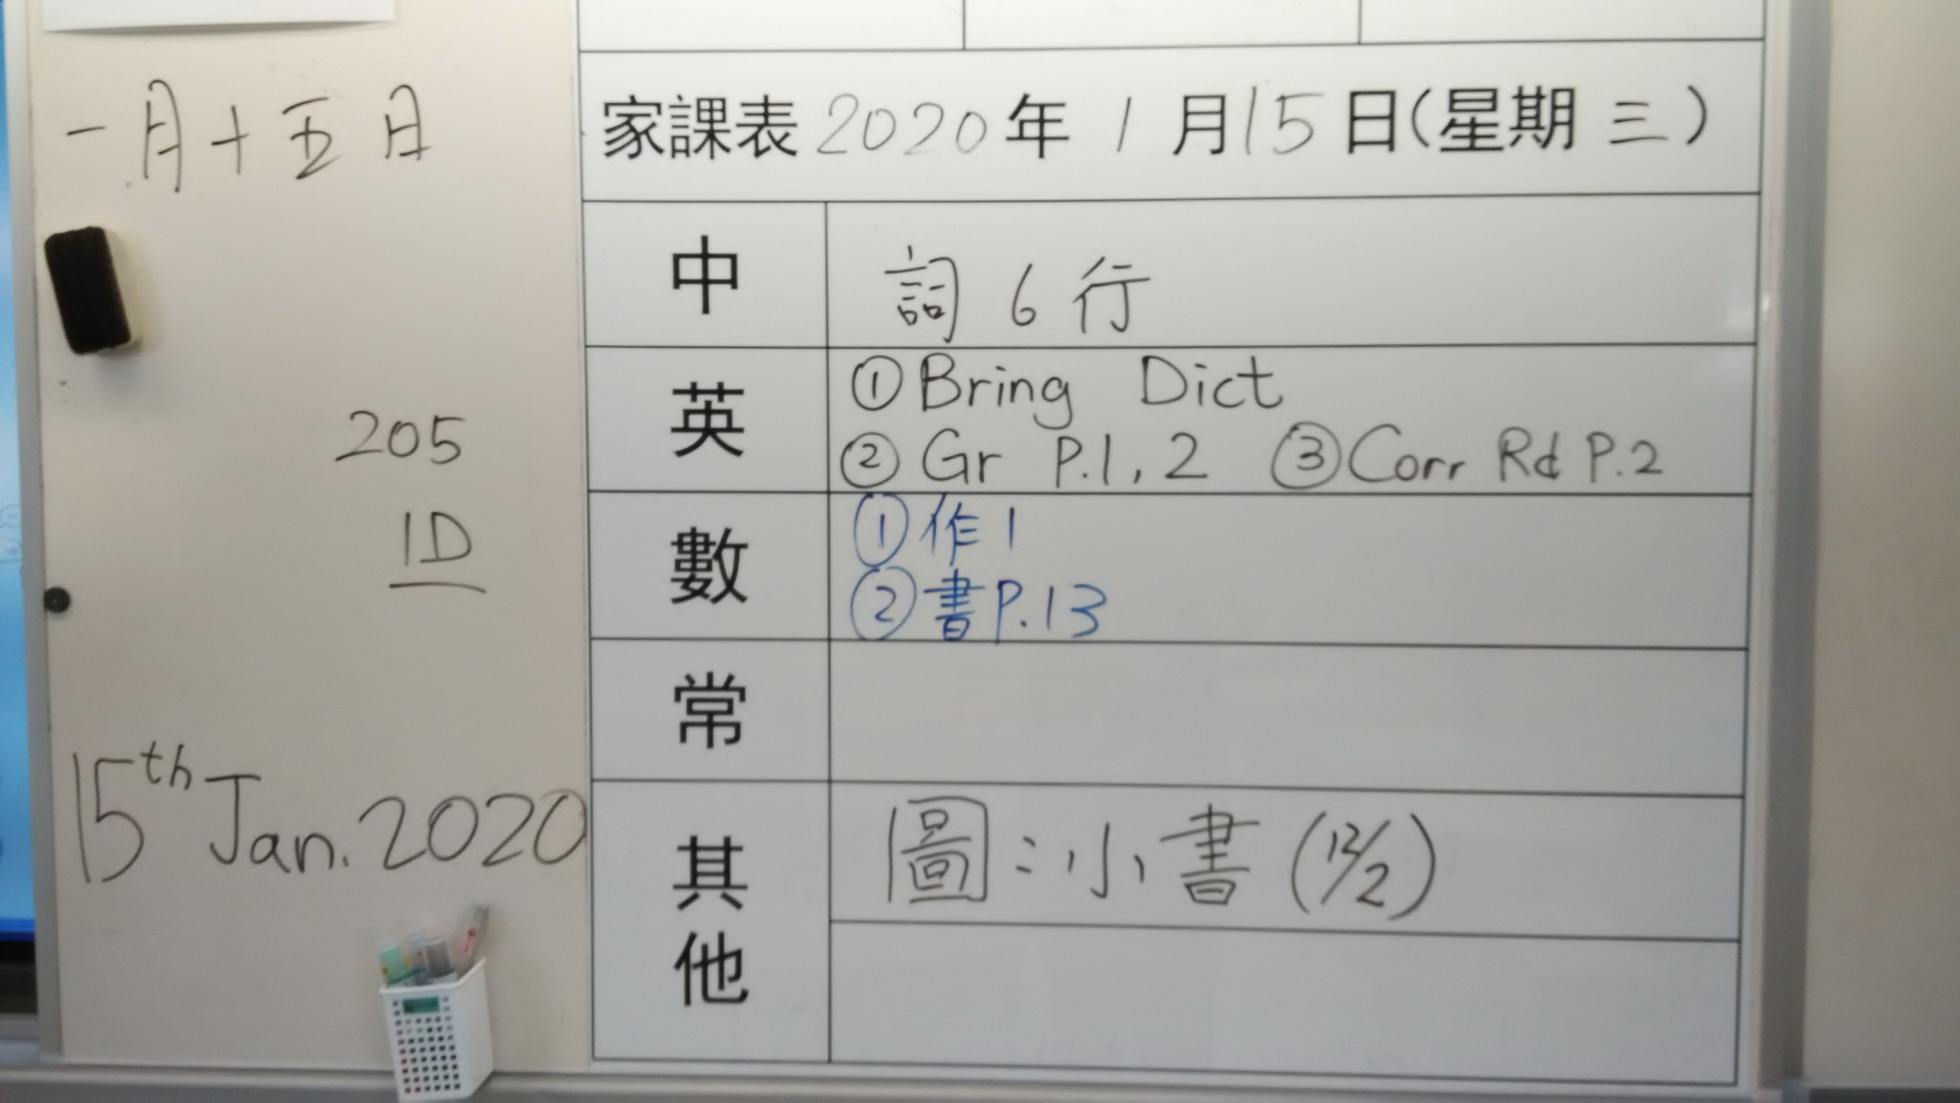 一月十五日
205
1D
15th Jan. 2020
家課表 2020 年 1 月 15 日(星期 三)
中 詞 6 行
英 ① Bring Dict
② Gr P.1, 2 ③ Corr Rd P.2
數 ① 作 1
② 書 P.13
常
其他 圖：小書 (12/2)